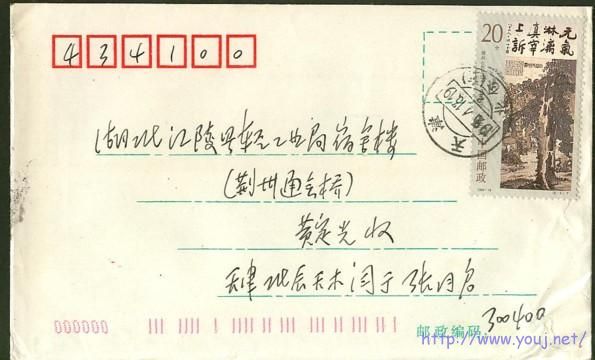 434100
20分
元氣
淋漓
真宰
上訴
中国邮政
天津
湖北江陵县轻工业局宿舍楼
(荆州通会桥)
黄定光 收
天津北辰天木 闫于 张月名
邮政编码
300400
000000
http://www.youj.net/